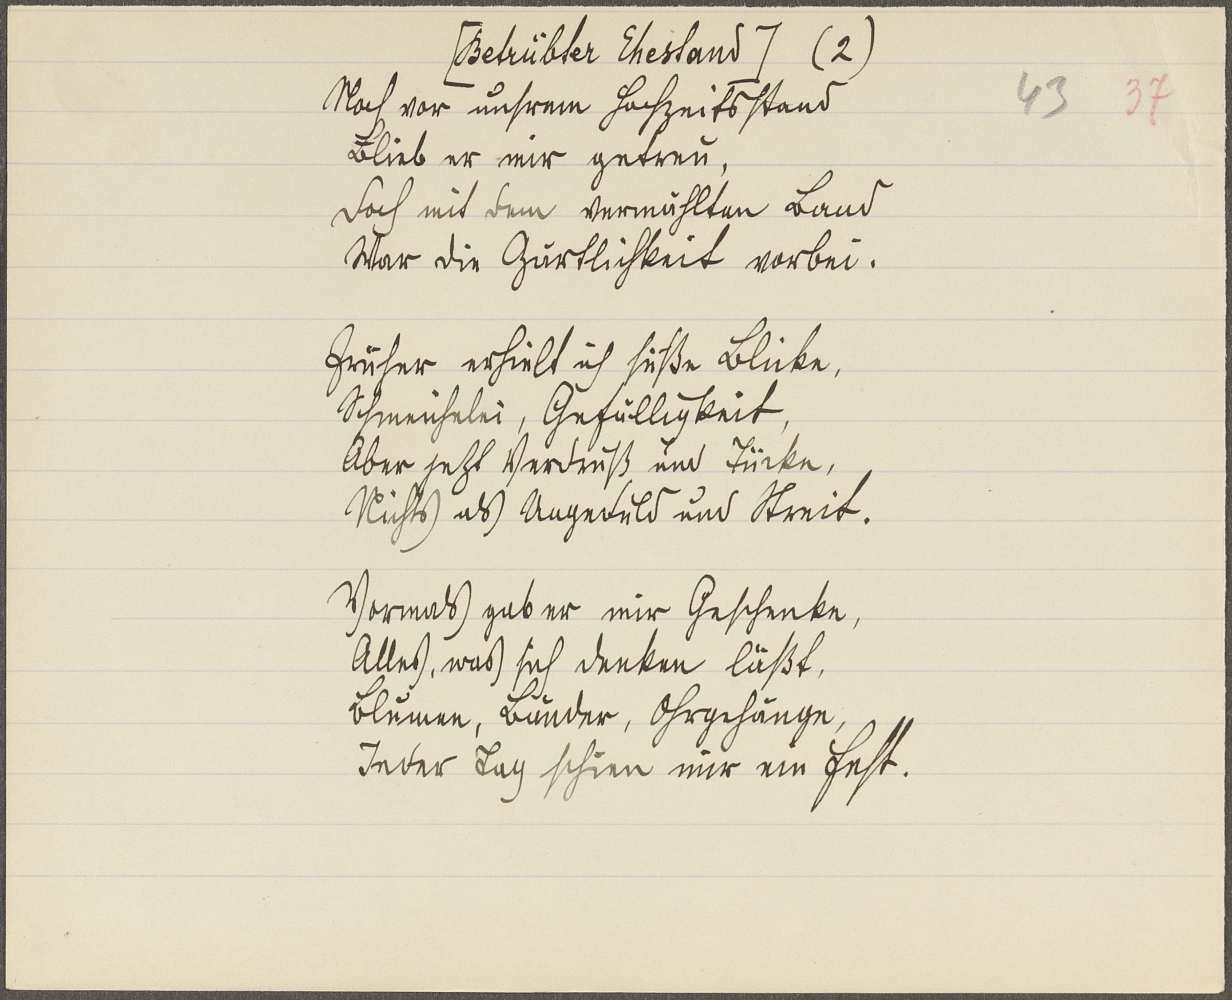 [Betrübter Ehestand] (2)
43 37
Noch vor unsrem Hochzeitsstand
Blieb er mir getreu,
Doch mit dem vermählten Band
War die Zärtlichkeit vorbei.
Früher erhielt ich süße Blicke,
Schmeichelei, Gefälligkeit,
Aber jetzt Verdruß und Tücke,
Nichts als Ungeduld und Streit.
Vormals gab er mir Geschenke,
Alles, was sich denken läßt,
Blumen, Bänder, Ohrgehänge,
Jeder Tag schien mir ein Fest.